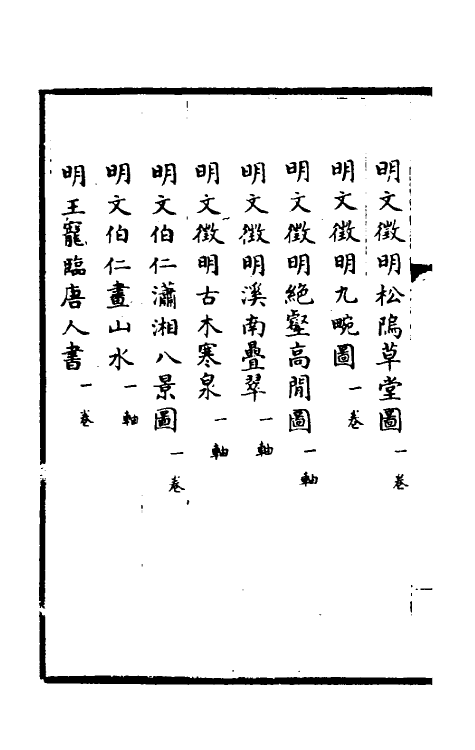 明文徵明松隖草堂圖一卷
明文徵明九畹圖一卷
明文徵明絕壑高閒圖一軸
明文徵明溪南疊翠一軸
明文徵明古木寒泉一軸
明文伯仁瀟湘八景圖一卷
明文伯仁畫山水一軸
明王寵臨唐人書一卷